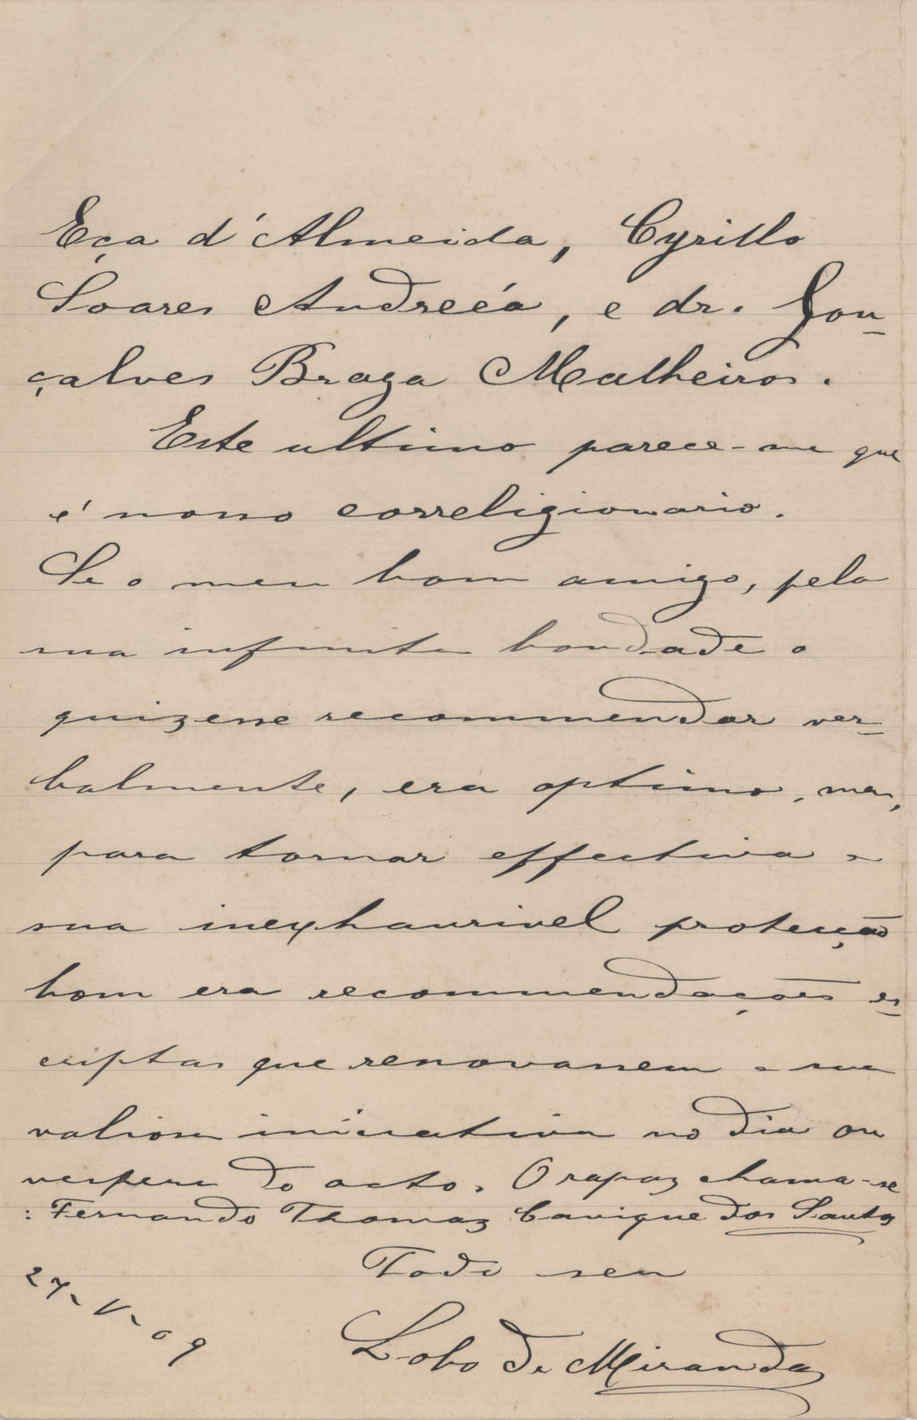 Eça d'Almeida, Cyrillo
Soares Andreéa, e dr. Gon-
çalves Braga Malheiros.
Este ultimo parece-me que
é nosso correligionario.
Se o meu bom amigo, pela
sua infinita bondade o
quizesse recommendar ver-
balmente, era optimo, mas,
para tornar effectiva a
sua inexhaurivel protecção
bom era recommendações es-
criptas que renovassem a sua
valiosa iniciativa no dia ou
vespera do acto. O rapaz chama-se
: Fernando Thomaz Canique dos Santos
Todo seu
27-V-09
Lobo de Miranda